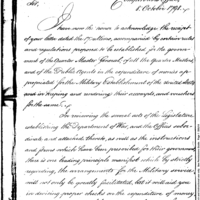 Sir,
2 October 1792.
I have now the honor to acknowledge the receipt
of your letter dated the 17th ultimo, accompanied by certain rules
and regulations proposed to be established for the govern-
ment of the Quarter Master General, of all the Quarter Masters
and of the Public Agents in the expenditure of monies ap-
propriated for the Military Establishment of the United States
and in keeping and rendering their accounts, and vouchers
for the same.
In reviewing the several acts of the Legislature
establishing the Department of War, and the offices subor-
dinate and attached thereto, as well as the instructions
and forms which have been prescribed for their government
there is one leading principle manifest which by strictly
regarding, the arrangements for the Military service
will not only be greatly facilitated, but it will aid you
in deriving proper checks on the expenditure of money